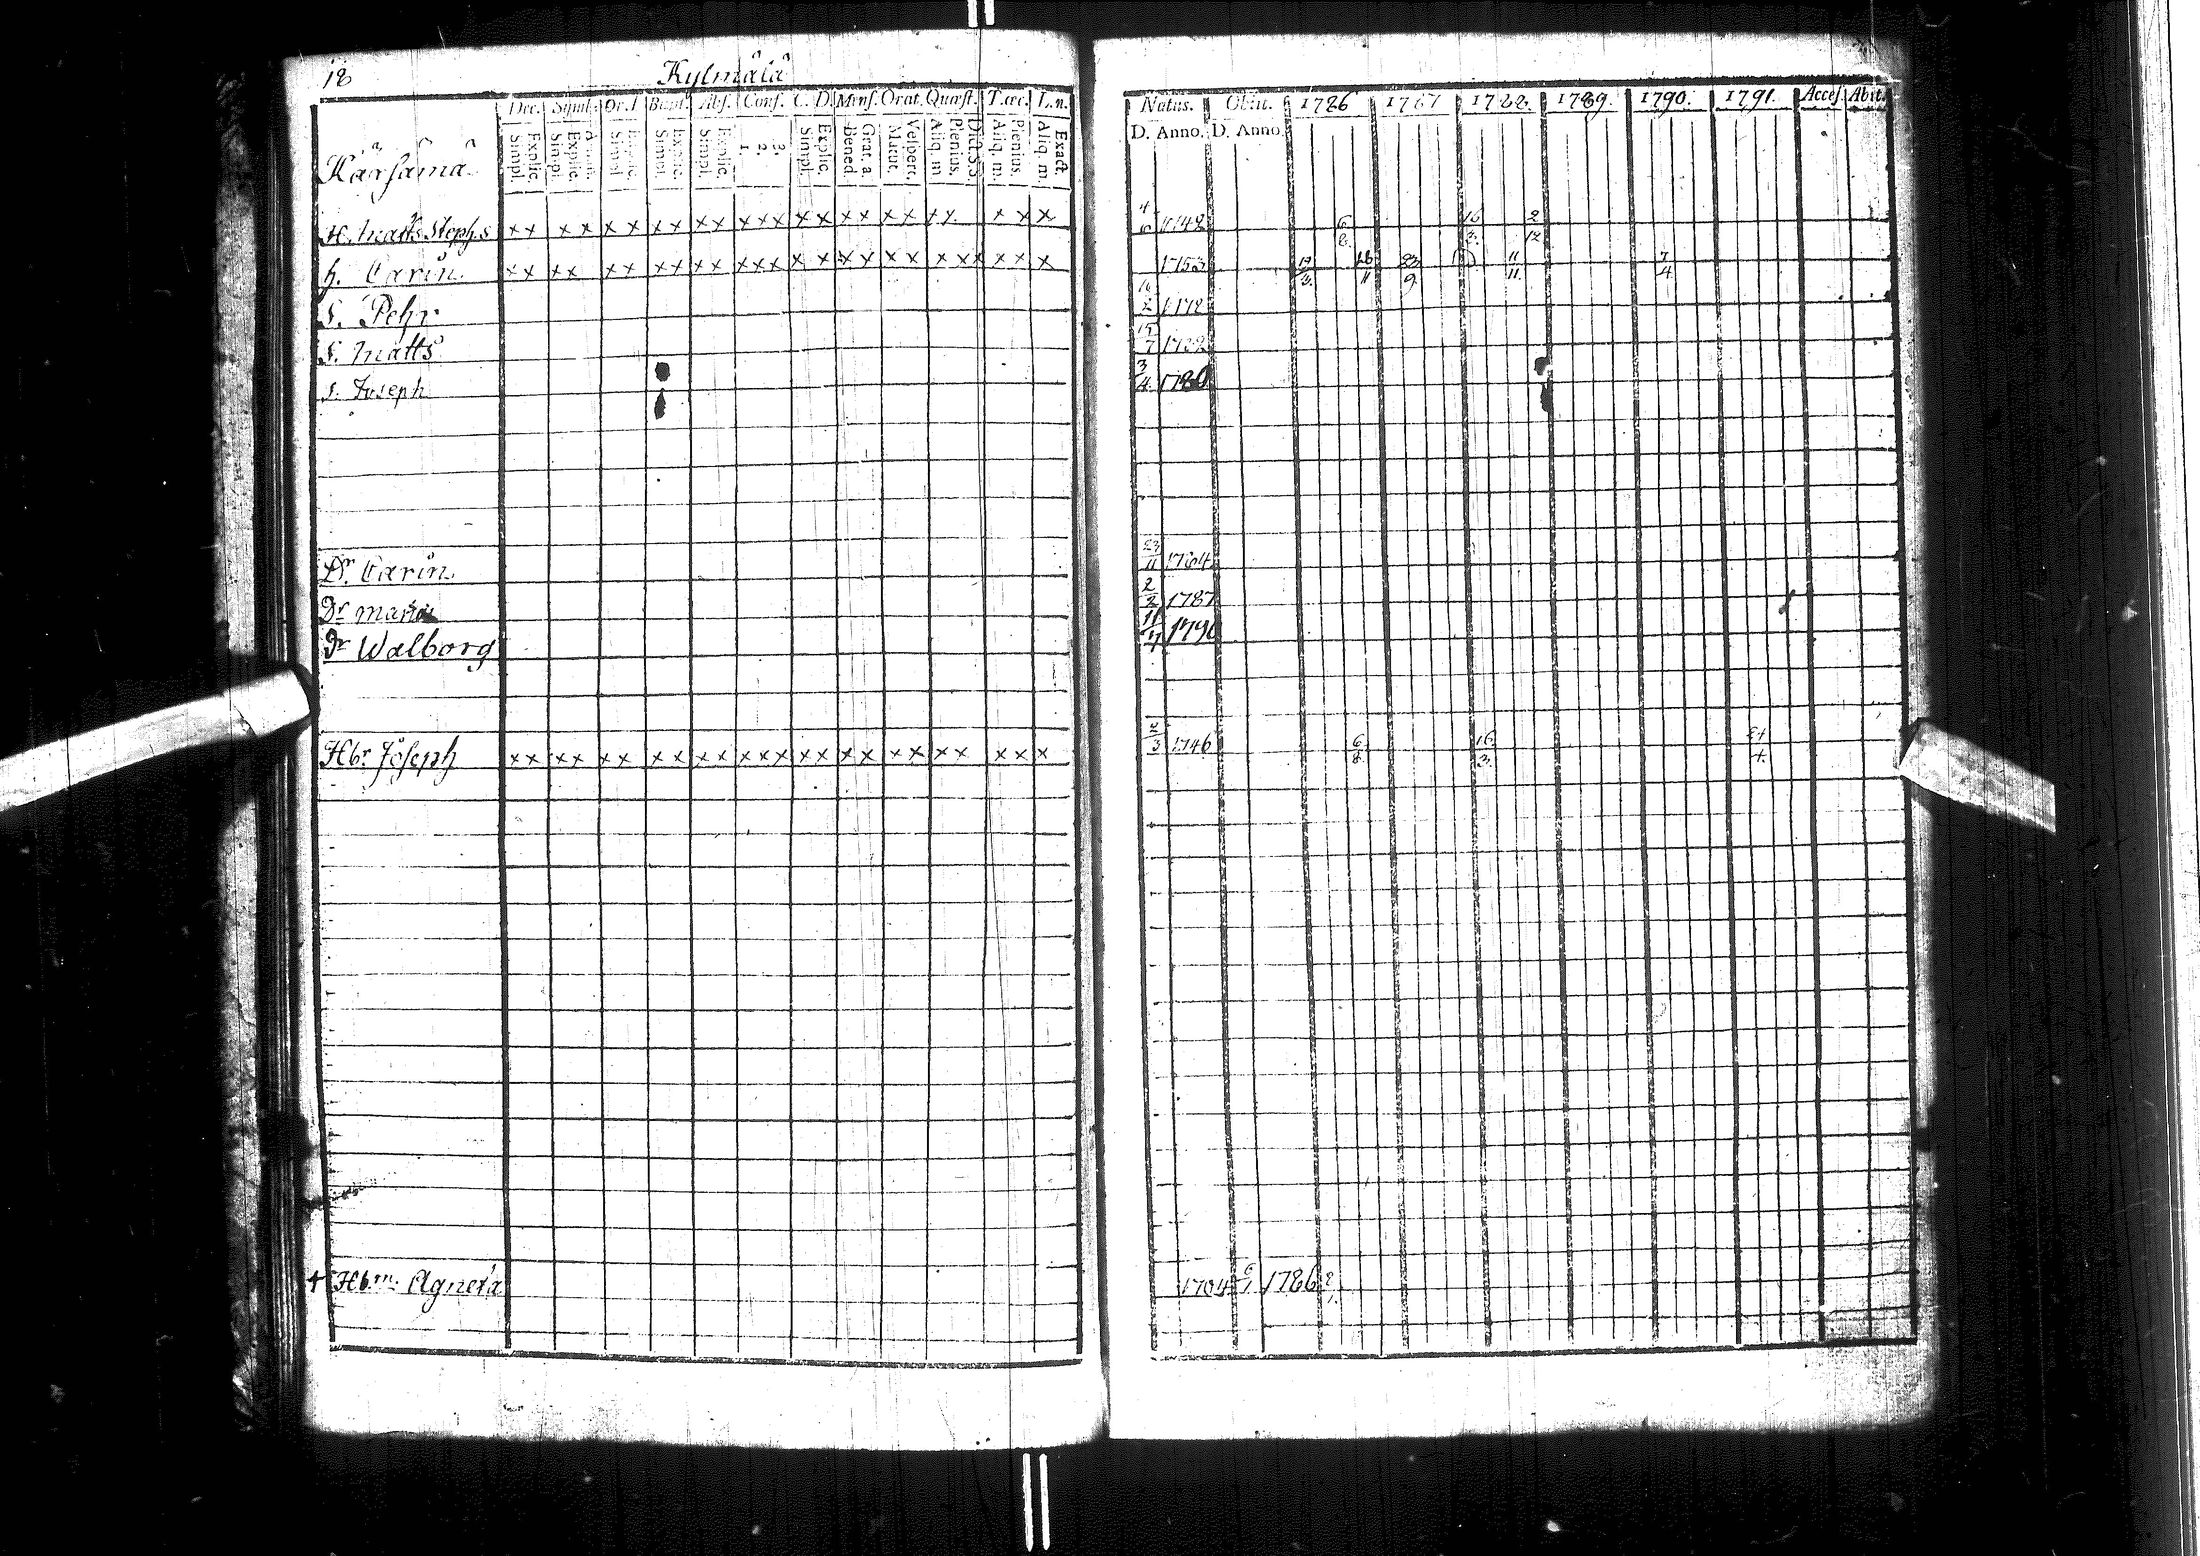 18 Kylmälä
Dec. Symb. Or. D. Bapt. Abs. Conf. C. D. Mens. Orat. Quæst. T. œc. L. n.
Simpl. Explic. Simpl. Explic. Simpl. Explic. Simpl. Explic. Simpl. Explic. 1. 2. 3. Simpl. Explic. Bened. Grat. a. Matut. Vespert. Aliq. m. Plenius. Dict. S. S. Aliq. m. Plenius. Aliq. m. Exact.
Kärsämä
H. Matts Stephs x x x x x x x x x x x x x x x x x x x x x x x x
h. Carin x x x x x x x x x x x x x x x x x x x x x x x x x
S. Pehr
S. Matts
S. Joseph
Dr. Carin
Dr Maria
Dr Walborg
Hbr Joseph x x x x x x x x x x x x x x x x x x x x x x x x
† Hbm. Agneta
Natus. Obiit. 1786 1787 1788. 1789. 1790. 1791. Acces. Abit.
D. Anno. D. Anno
6/8 16/3 2/12
1753 19/3 26/11 23/9 11/11 7/4
3/4 1780
23/11 1784
2/2 1787
11/4 1790
2/3 1746 6/8 16/3 24/4
1704 6/1 1786